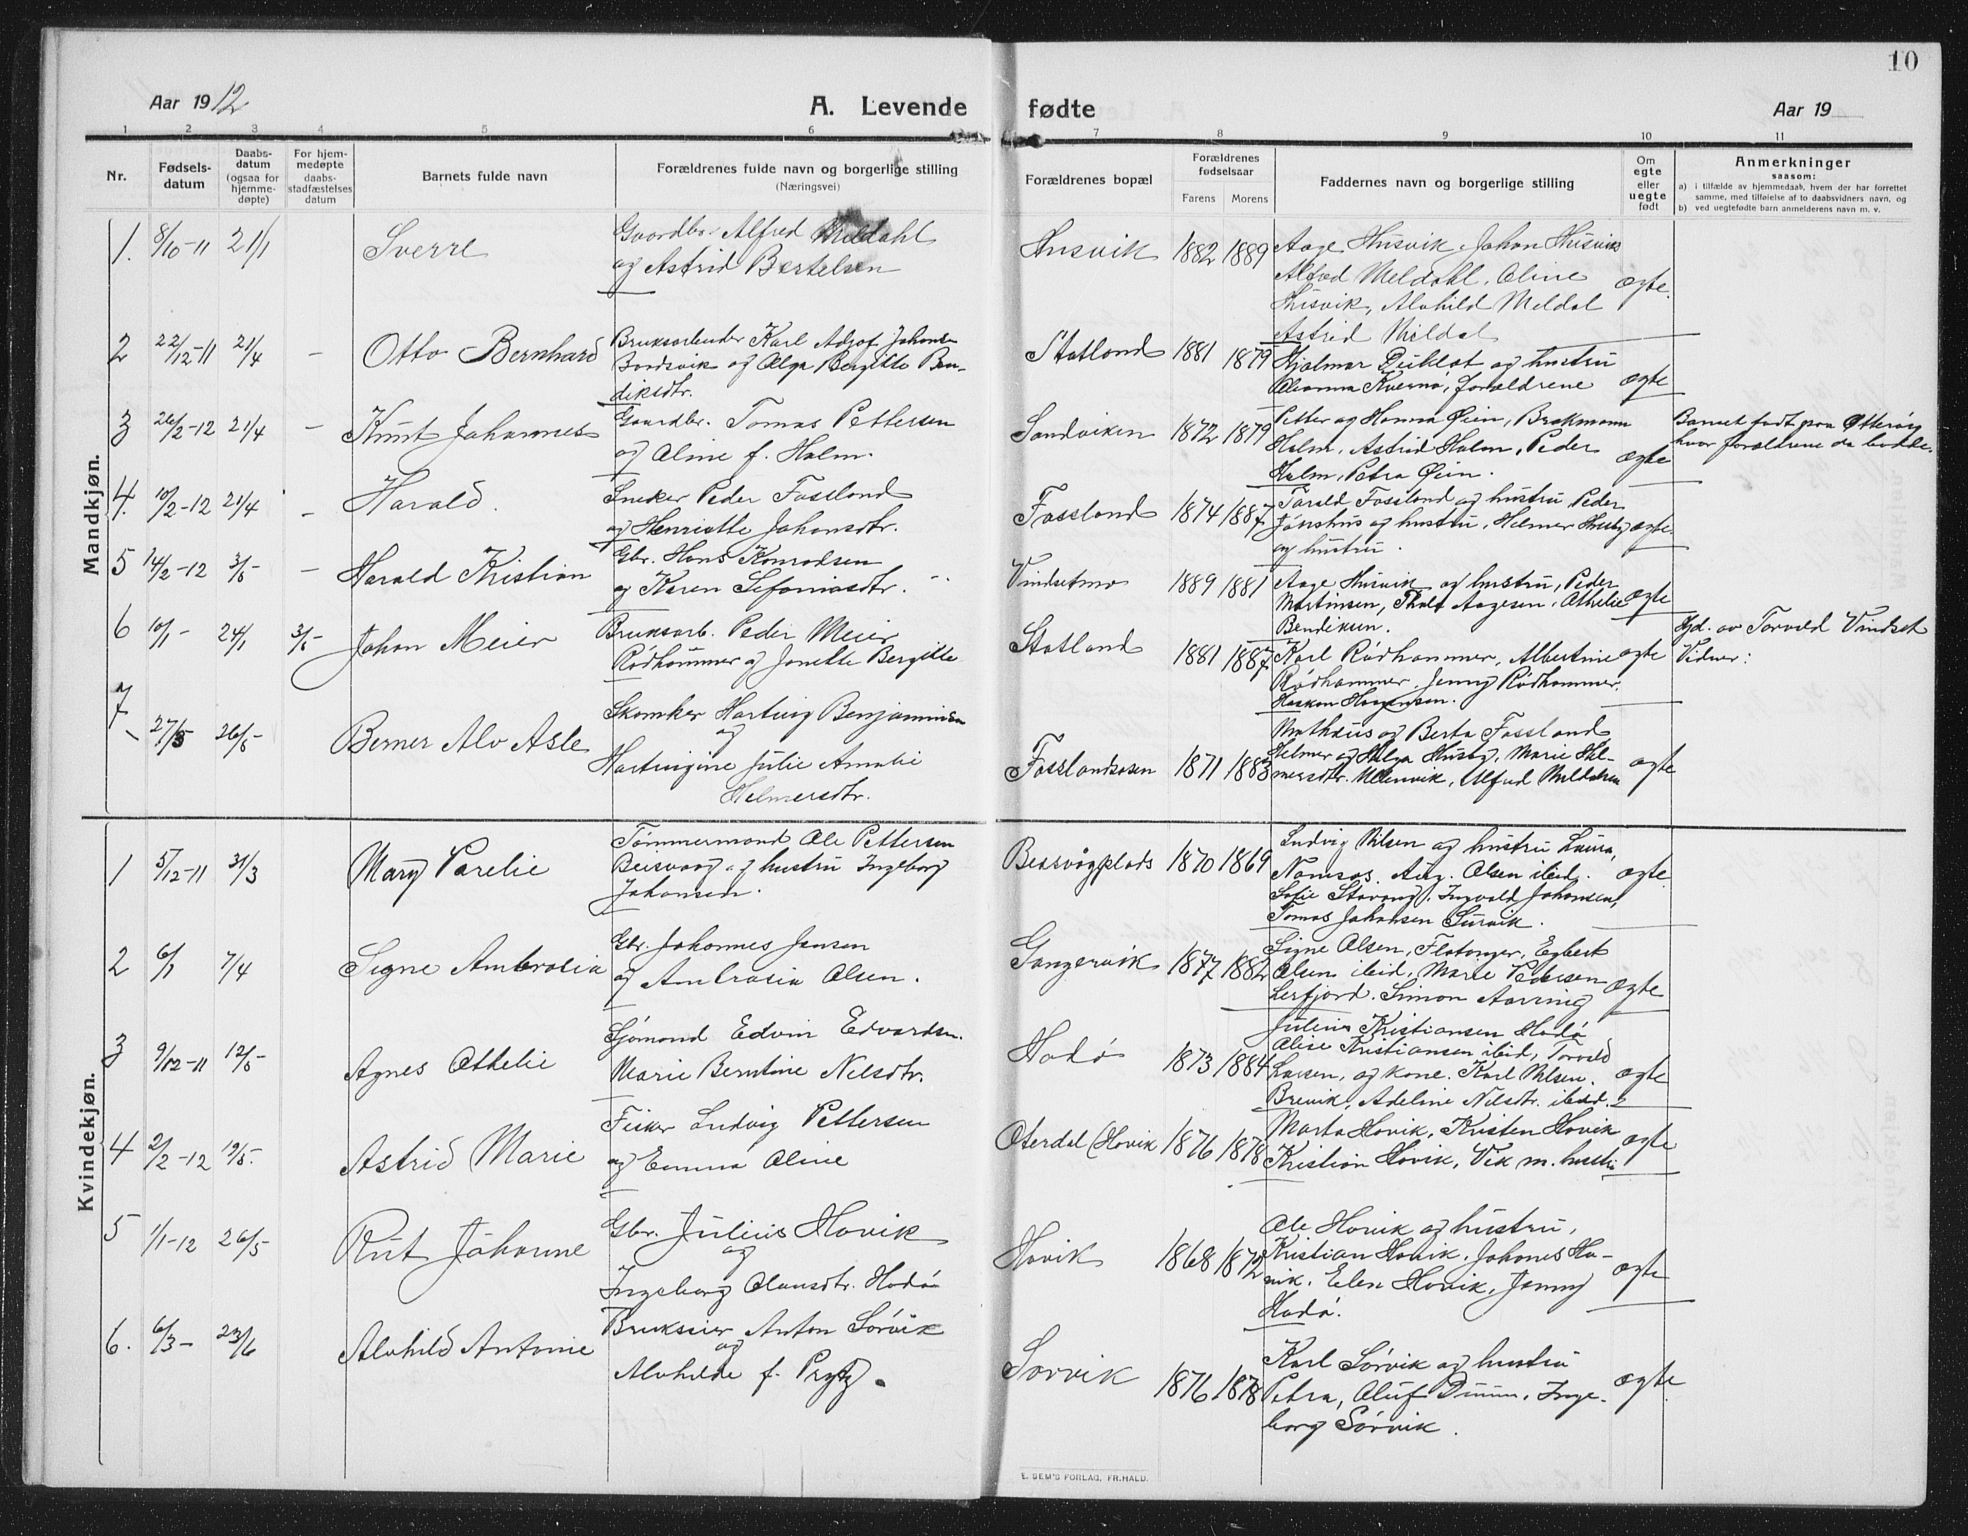 10
Aar 1912
A. Levende
fødte
Aar 19
1 2 3 4 5 6 7 8 9 10 11
Nr.
Fødsels-
datum
Daabs-
datum
(ogsaa for
hjemme-
døpte)
For hjem-
medøpte
daabs-
stadfæstelses
datum
Barnets fulde navn
Forældrenes fulde navn og borgerlige stilling
(Næringsvei)
Forældrenes bopæl
Forældrenes
fødselsaar
Farens Morens
Faddernes navn og borgerlige stilling
Om
egte
eller
uegte
født
Anmerkninger
saasom:
a) i tilfælde av hjemmedaab, hvem der har forrettet
samme, med tilføielse af to daabsvidners navn, og
b) ved uegtefødte barn anmelderens navn m. v.
Mandkjøn.
1. 8/10-11 21/1 Sverre
Gaardbr. Alfred Meldahl
og Astrid Bertelsen
Husvik 1882 1889
Aage Husvik, Johan Husvik
Alfred Meldahl, Oline
Husvik, Alvhild Meldal
Astrid Meldal
ægte.
2 22/12-11 21/4 – Otto Bernhard
Bruksarbeider Karl Adjof Johans
Bordsvik og Olga Bergitte Ben-
diksdtr.
Statland 1881 1879
Hjalmar Duklat og hustru
Kvernø, forældrene
ægte
3 26/2-12 21/4 – Knut Johannes
Gaardbr. Tomas Pettersen
og Oline f. Holm.
Sandviken 1872 1879
Petter og Hanna Øien, Brekmann
Holm, Astrid Holm, Peder
Holm, Petra Øien.
ægte
Barnet født paa Otterøy
hvor forældrene da bodde.
4. 10/2-12 21/4 – Harald.
Sneker Peder Fossland
og Henriette Johansdtr.
Fossland 1874 1887
Tarald Fossland og hustru Peder
Jønshus og hustru, Helmer Husby
og hustru.
ægte.
5 14/2-12 3/5- – Harald Kristian
Gbr. Hans Konradsen
og Karen Sefaniasdtr.
Vindsetmo 1889 1881
Aage Husvik og hustru, Peder
Martinsen, Thale Aagesen, Othelie
Bendiksen.
ægte
6 10/1- 24/1 3/5- Johan Meier
Bruksarb. Peder Meier
Rødhammer og Jonette Bergitte
Statland 1881 1887
Karl Rødhammer, Albertine
Rødhammer, Jenny Rødhammer,
Haakon Haagensen.
ægte
Hjd. av Torvald Vindset
Vidner:
7 27/3 26/5- Berner Alv Asle
Skomker Hartvig Benjaminsen
og
Hartvigine Julie Amalie
Helmersdtr.
Fosslandsosen 1871 1883
Mathæus og Berta Fossland
Helmer og Helga Husby, Marie Hel-
mersdtr. Ullenvik, Alfred Meldahl
ægte
Kvindekjøn.
1 5/12-11 31/3 Mary Parelie
Tømmermand Ole Pettersen
Beisvaag og hustru Ingeborg
Johansen.
Beisvågplads 1870 1869
Ludvig Nilsen og hustru Laura,
Namsos. Aug. Olsen ibid.
Sofie Stavang, Ingvald Johansen,
Tomas Johansen Survik.
ægte
2 6/1 7/4 Signe Ambrosia
Gbr. Johannes Jansen
og Ambrosia Olsen.
Gangervik 1877 1882
Signe Olsen, Flotanger, Egbert
Olsen ibid, Marie Pedersen
Lerfjord. Simon Aarring
ægte
3 9/12-11 12/5- Agnes Othelie
Sjømand Edvin Edvardsen.
Marie Berntine Nilsdtr.
Hodø 1873 1884
Julius Kristiansen Hodø
Alise Kristiansen ibid, Torvald
Larsen, og kone. Karl Nilsen.
Brevik, Adeline Nilsdtr. ibid.
ægte
4 2/2-12 19/5- Astrid Marie
Fisker Ludvig Pettersen
og Emma Oline
Oterdal (Hovik 1876 1878
Marta Hovik, Kristen Hovik
Kristian Hovik, Vik m. hustru
ægte
5 1/1-12 26/5 Rut Johanne
Gbr. Julius Hovik
og
Ingeborg Olausdtr. Hodø
Hovik 1868 1872
Ole Hovik og hustru,
Kristian Hovik, Johanes Ho-
vik, Elen Hovik, Jenny
Hodø.
ægte
6. 6/3- 23/6 Alvhild Antonie
Brukseier Anton Sørvik
og
Alvhilde f. Prytz.
Sørvik 1876 1878
Karl Sørvik og hustru
Petra, Oluf Duun, Inge-
borg Sørvik.
ægte
E. SEM'S FORLAG, FR.HALD.